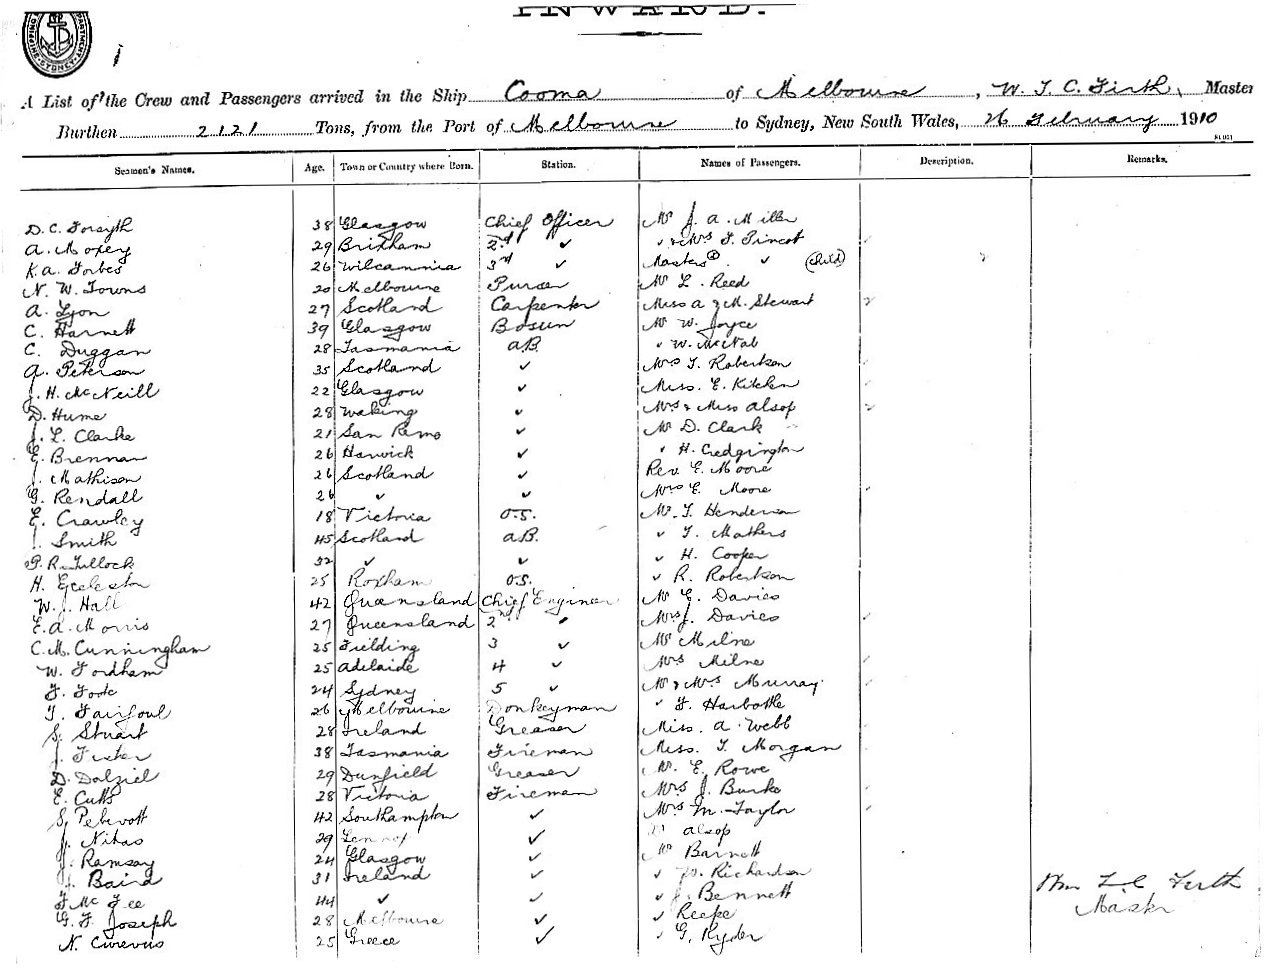 INWARD.
SHIPPING DEPARTMENT SYDNEY
A List of the Crew and Passengers arrived in the Ship Cooma of Melbourne, W. T. C. Firth, Master
Burthen 2121 Tons, from the Port of Melbourne to Sydney, New South Wales, 26 February 1910
Seamen's Names. Age. Town or Country where Born. Station. Names of Passengers. Description. Remarks.
D. C. Forsyth 38 Glasgow Chief Officer Mr J. A. Miller
A. Moxey 29 Brixham 2nd ✓ ✓ & Mrs T. Pincot
K. A. Forbes 26 Wilcannia 3rd ✓ Masters ✓ (Child)
N. W. Towns 20 Melbourne Purser Mr L. Reed
A. Lyon 27 Scotland Carpenter Miss A & M. Stewart
C. Harnett 39 Glasgow Bosun Mr W. Joyce
C. Duggan 28 Tasmania A.B. ✓ W. McNab
A. Peterson 35 Scotland ✓ Mrs T. Robertson
J. H. McNeill 22 Glasgow ✓ Miss. E. Kitchen
D. Hume 28 Woking ✓ Mrs & Miss Alsop
J. L. Clarke 21 San Remo ✓ Mr D. Clark
E. Brennan 26 Harwick ✓ ✓ H. Credgington
J. Mathison 26 Scotland ✓ Rev. E. Moore
G. Rendall 26 ✓ ✓ Mrs E. Moore
E. Crawley 18 Victoria O.S. Mr. T. Henderson
J. Smith 45 Scotland A.B. ✓ T. Mathers
P. R. Tullock 32 ✓ ✓ ✓ H. Cooper
H. Eccleston 25 Roxham O.S. ✓ R. Robertson
W. J. Hall 42 Queensland Chief Engineer Mr E. Davies
E. A. Morris 27 Queensland 2nd ✓ Mrs J. Davies
C. M. Cunningham 25 Fielding 3 ✓ Mr Milne
W. Fordham 25 Adelaide 4 ✓ Mrs Milne
F. Foote 24 Sydney 5 ✓ Mr & Mrs Murray
T. Fairfoul 26 Melbourne Donkeyman ✓ F. Harbottle
S. Stuart 28 Ireland Greaser Miss. A. Webb
J. Fisher 38 Tasmania Fireman Miss. T. Morgan
D. Dalziel 29 Dunfield Greaser Mr. E. Rowe
E. Cutts 28 Victoria Fireman Mrs J. Burke
S. 42 Southampton ✓ Mrs M. Taylor
J. Nihas 29 Lennox ✓ Alsop
J. Ramsay 24 Glasgow ✓ Mr Barnett
J. Baird 31 Ireland ✓ ✓ W. Richardson
F. McFee 44 ✓ ✓ ✓ J. Bennett
G. F. Joseph 28 Melbourne ✓ ✓ Reepe
N. 25 Greece ✓ ✓ G. Ryder
Wm T. C. Firth
Master